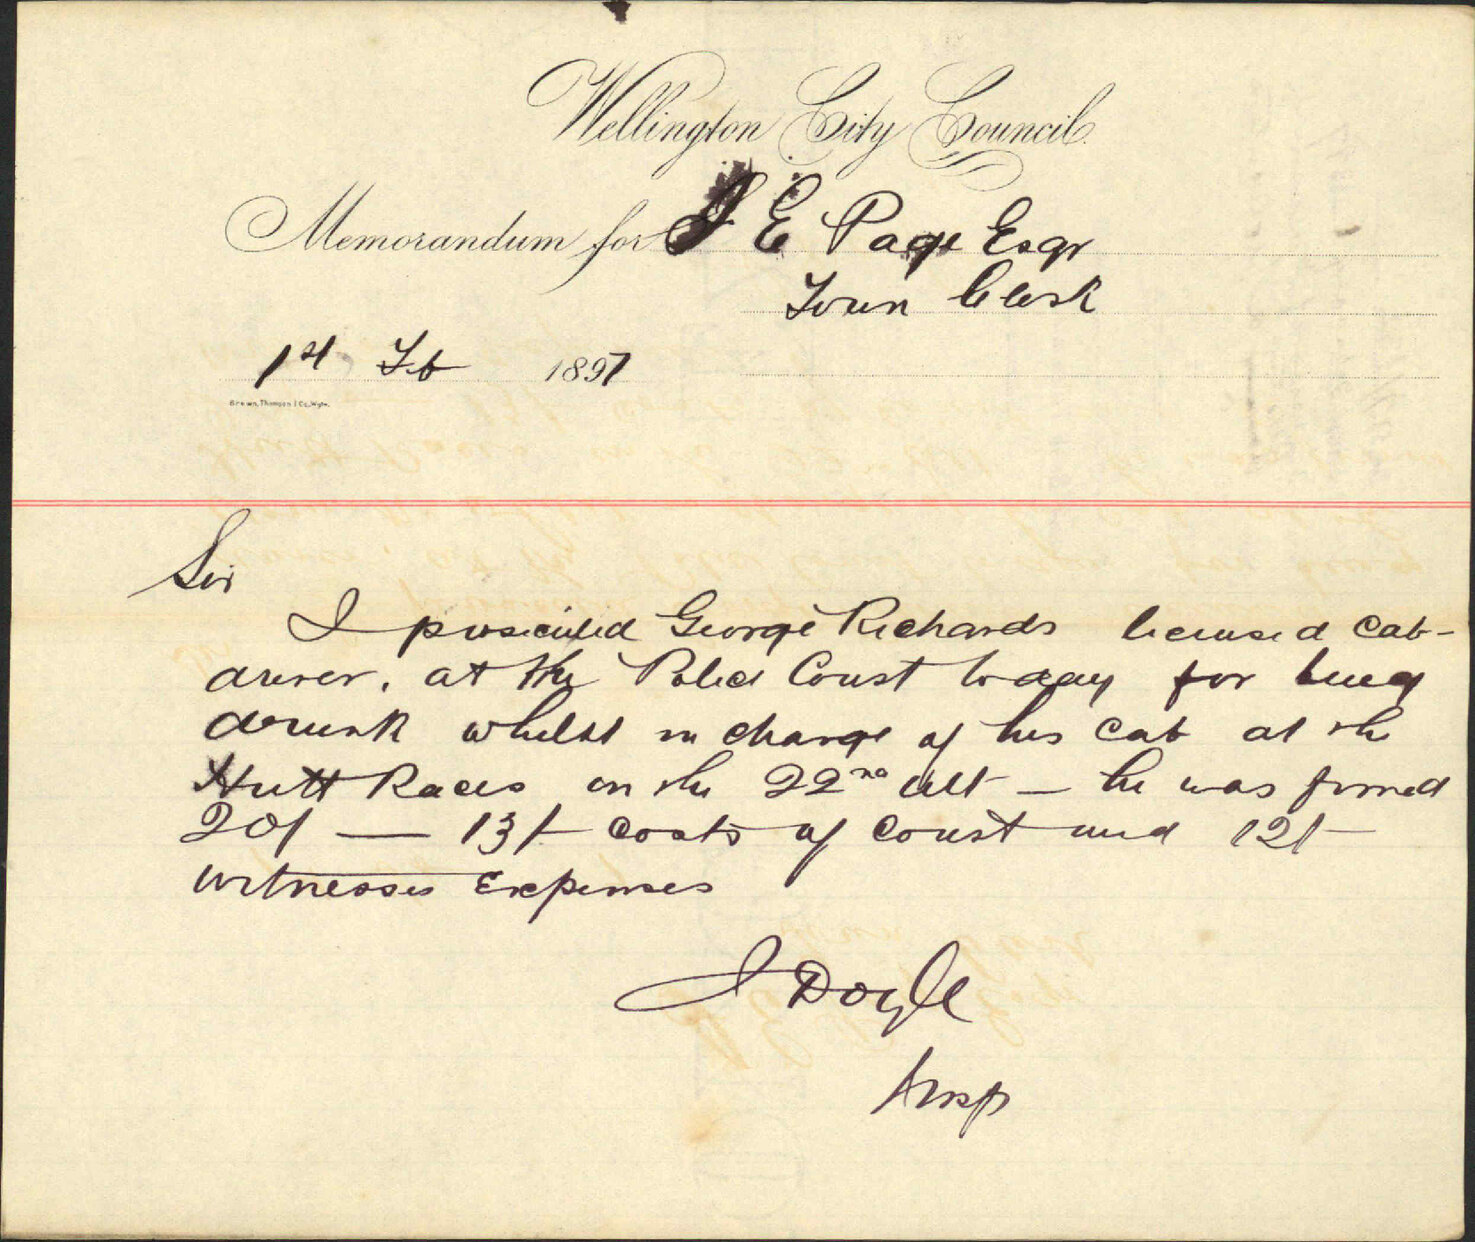 Wellington City Council.
Memorandum for J E Page Esqr
Town Clerk
1st Feb 1897
Brown, Thomson & Co, Wgtn.
Sir
I prosecuted George Richards licensed Cab-
driver, at the Police Court to day for being
drunk whilst in charge of his Cab at the
Hutt Races on the 22nd ult — he was fined
20/ — 13/- costs of Court and 12/-
witnesses Expenses
J Doyle
Insp